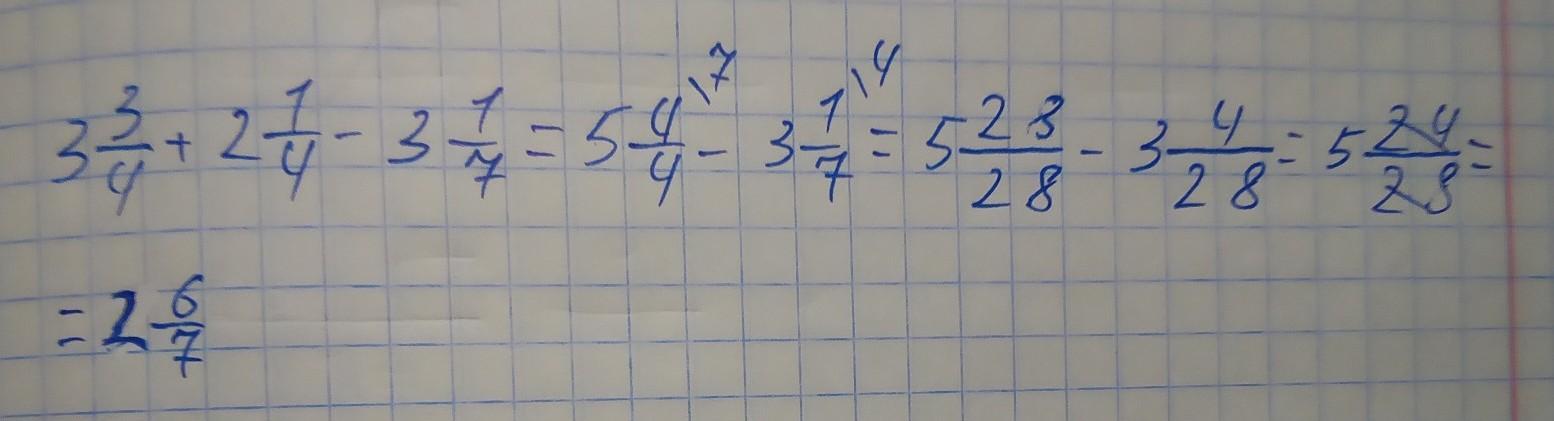 3 3/4 + 2 1/4 - 3 1/7 = 5 4/4 \7 - 3 1/7 \4 = 5 28/28 - 3 4/28 = 5 24/28 =
= 2 6/7